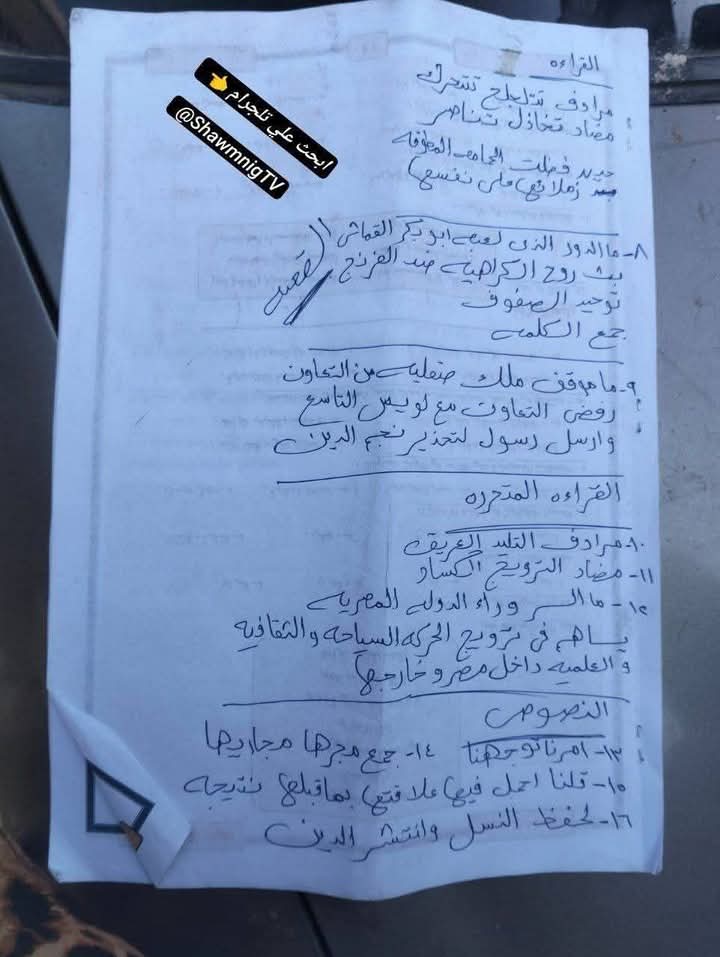 ابحث علي تلجرام 👈
@ShawmnigTV
القراءه
مرادف تتلعلع تتحرك
مضاد تخاذل تناصر
فضلت الحمامه المطوقه
زملائها على نفسها
٨- ما الدور الذى لعبه ابو بكر القماش القصه
بث روح الكراهيه ضد الفرنج
توحيد الصفوف
جمع الكلمه
٩- ما موقف ملك صقليه من التعاون
رفض التعاون مع لويس التاسع
وارسل رسول لتحذير نجم الدين
القراءه المتحرره
١٠- مرادف التليد العريق
١١- مضاد الترويج الكساد
١٢- ما السر وراء الدوله المصريه
يساهم فى ترويج الحركه السياحه والثقافيه
والعلميه داخل مصر وخارجها
النصوص
١٣- امرنا توجهنا ١٤- جمع مجرها مجاريها
١٥- قلنا احمل فيها علاقتها بماقبلها نتيجه
١٦- لحفظ النسل وانتشر الدين